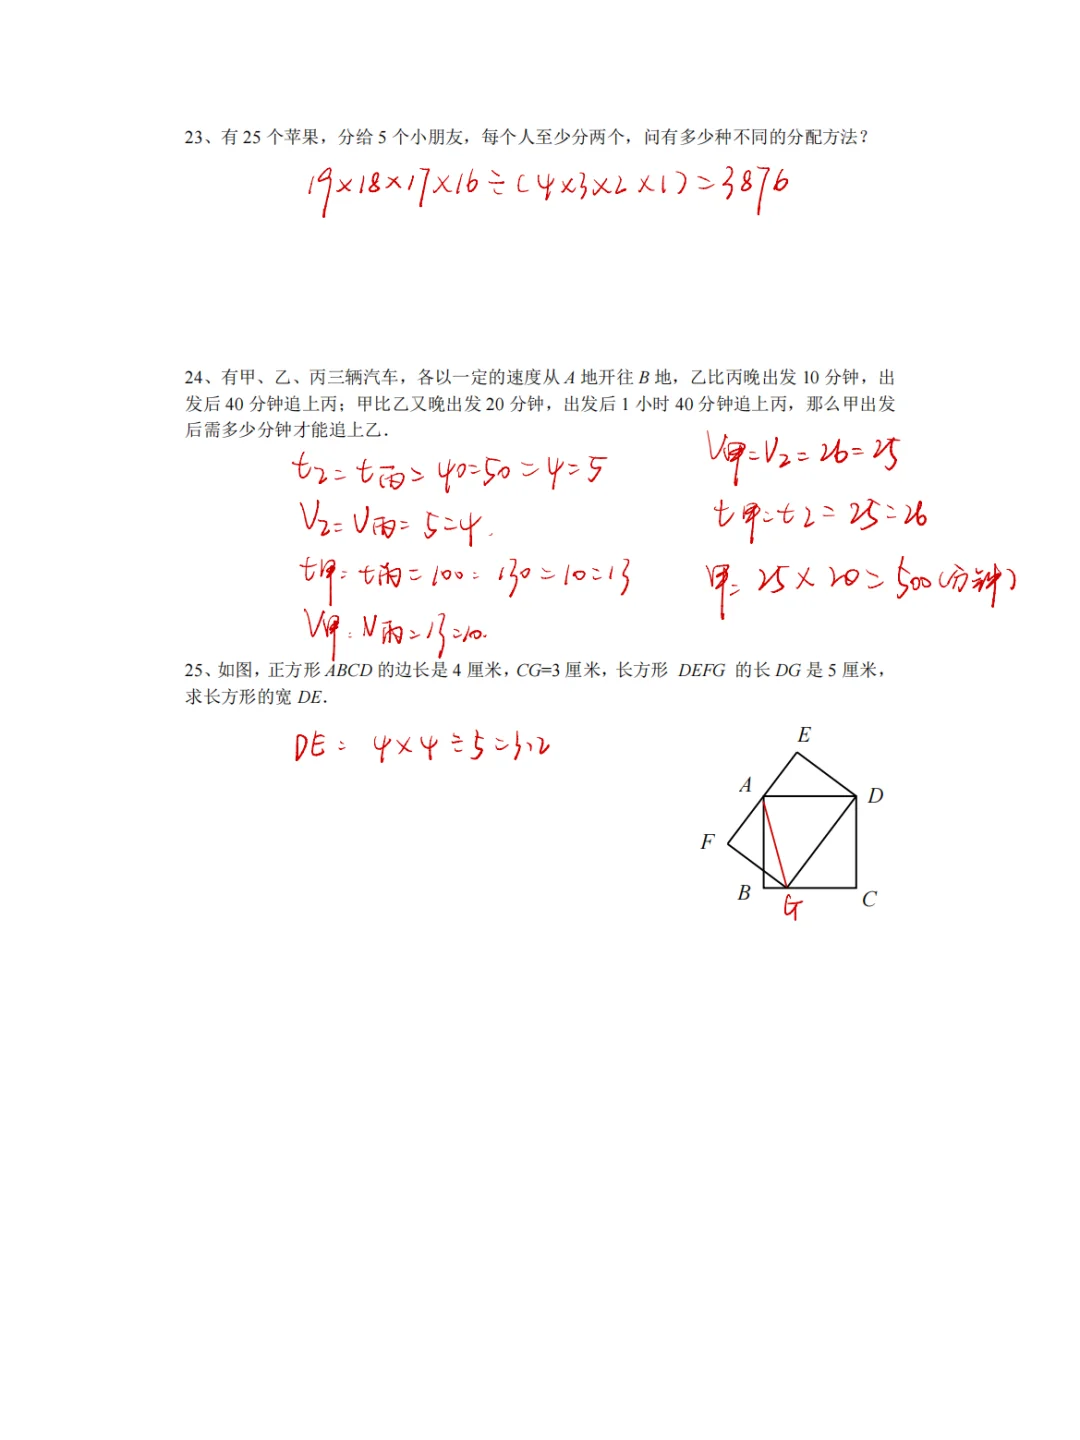 23、有 25 个苹果，分给 5 个小朋友，每个人至少分两个，问有多少种不同的分配方法？
19×18×17×16÷(4×3×2×1)=3876
24、有甲、乙、丙三辆汽车，各以一定的速度从 A 地开往 B 地，乙比丙晚出发 10 分钟，出
发后 40 分钟追上丙；甲比乙又晚出发 20 分钟，出发后 1 小时 40 分钟追上丙，那么甲出发
后需多少分钟才能追上乙．
t乙:t丙=40:50=4:5
V乙:V丙=5:4.
t甲:t丙=100:130=10:13
V甲:V丙=13:10.
V甲:V乙=26:25
t甲:t乙=25:26
甲:25×20=500(分钟)
25、如图，正方形 ABCD 的边长是 4 厘米，CG=3 厘米，长方形 DEFG 的长 DG 是 5 厘米，
求长方形的宽 DE．
DE: 4×4÷5=3.2
E
A
D
F
B
G
C